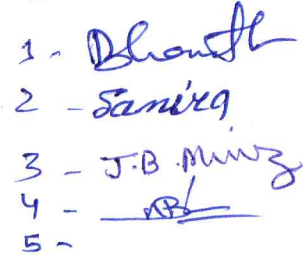 1 - Bharath
2 - Samira
3 - J.B. Minz
4 -
5 -